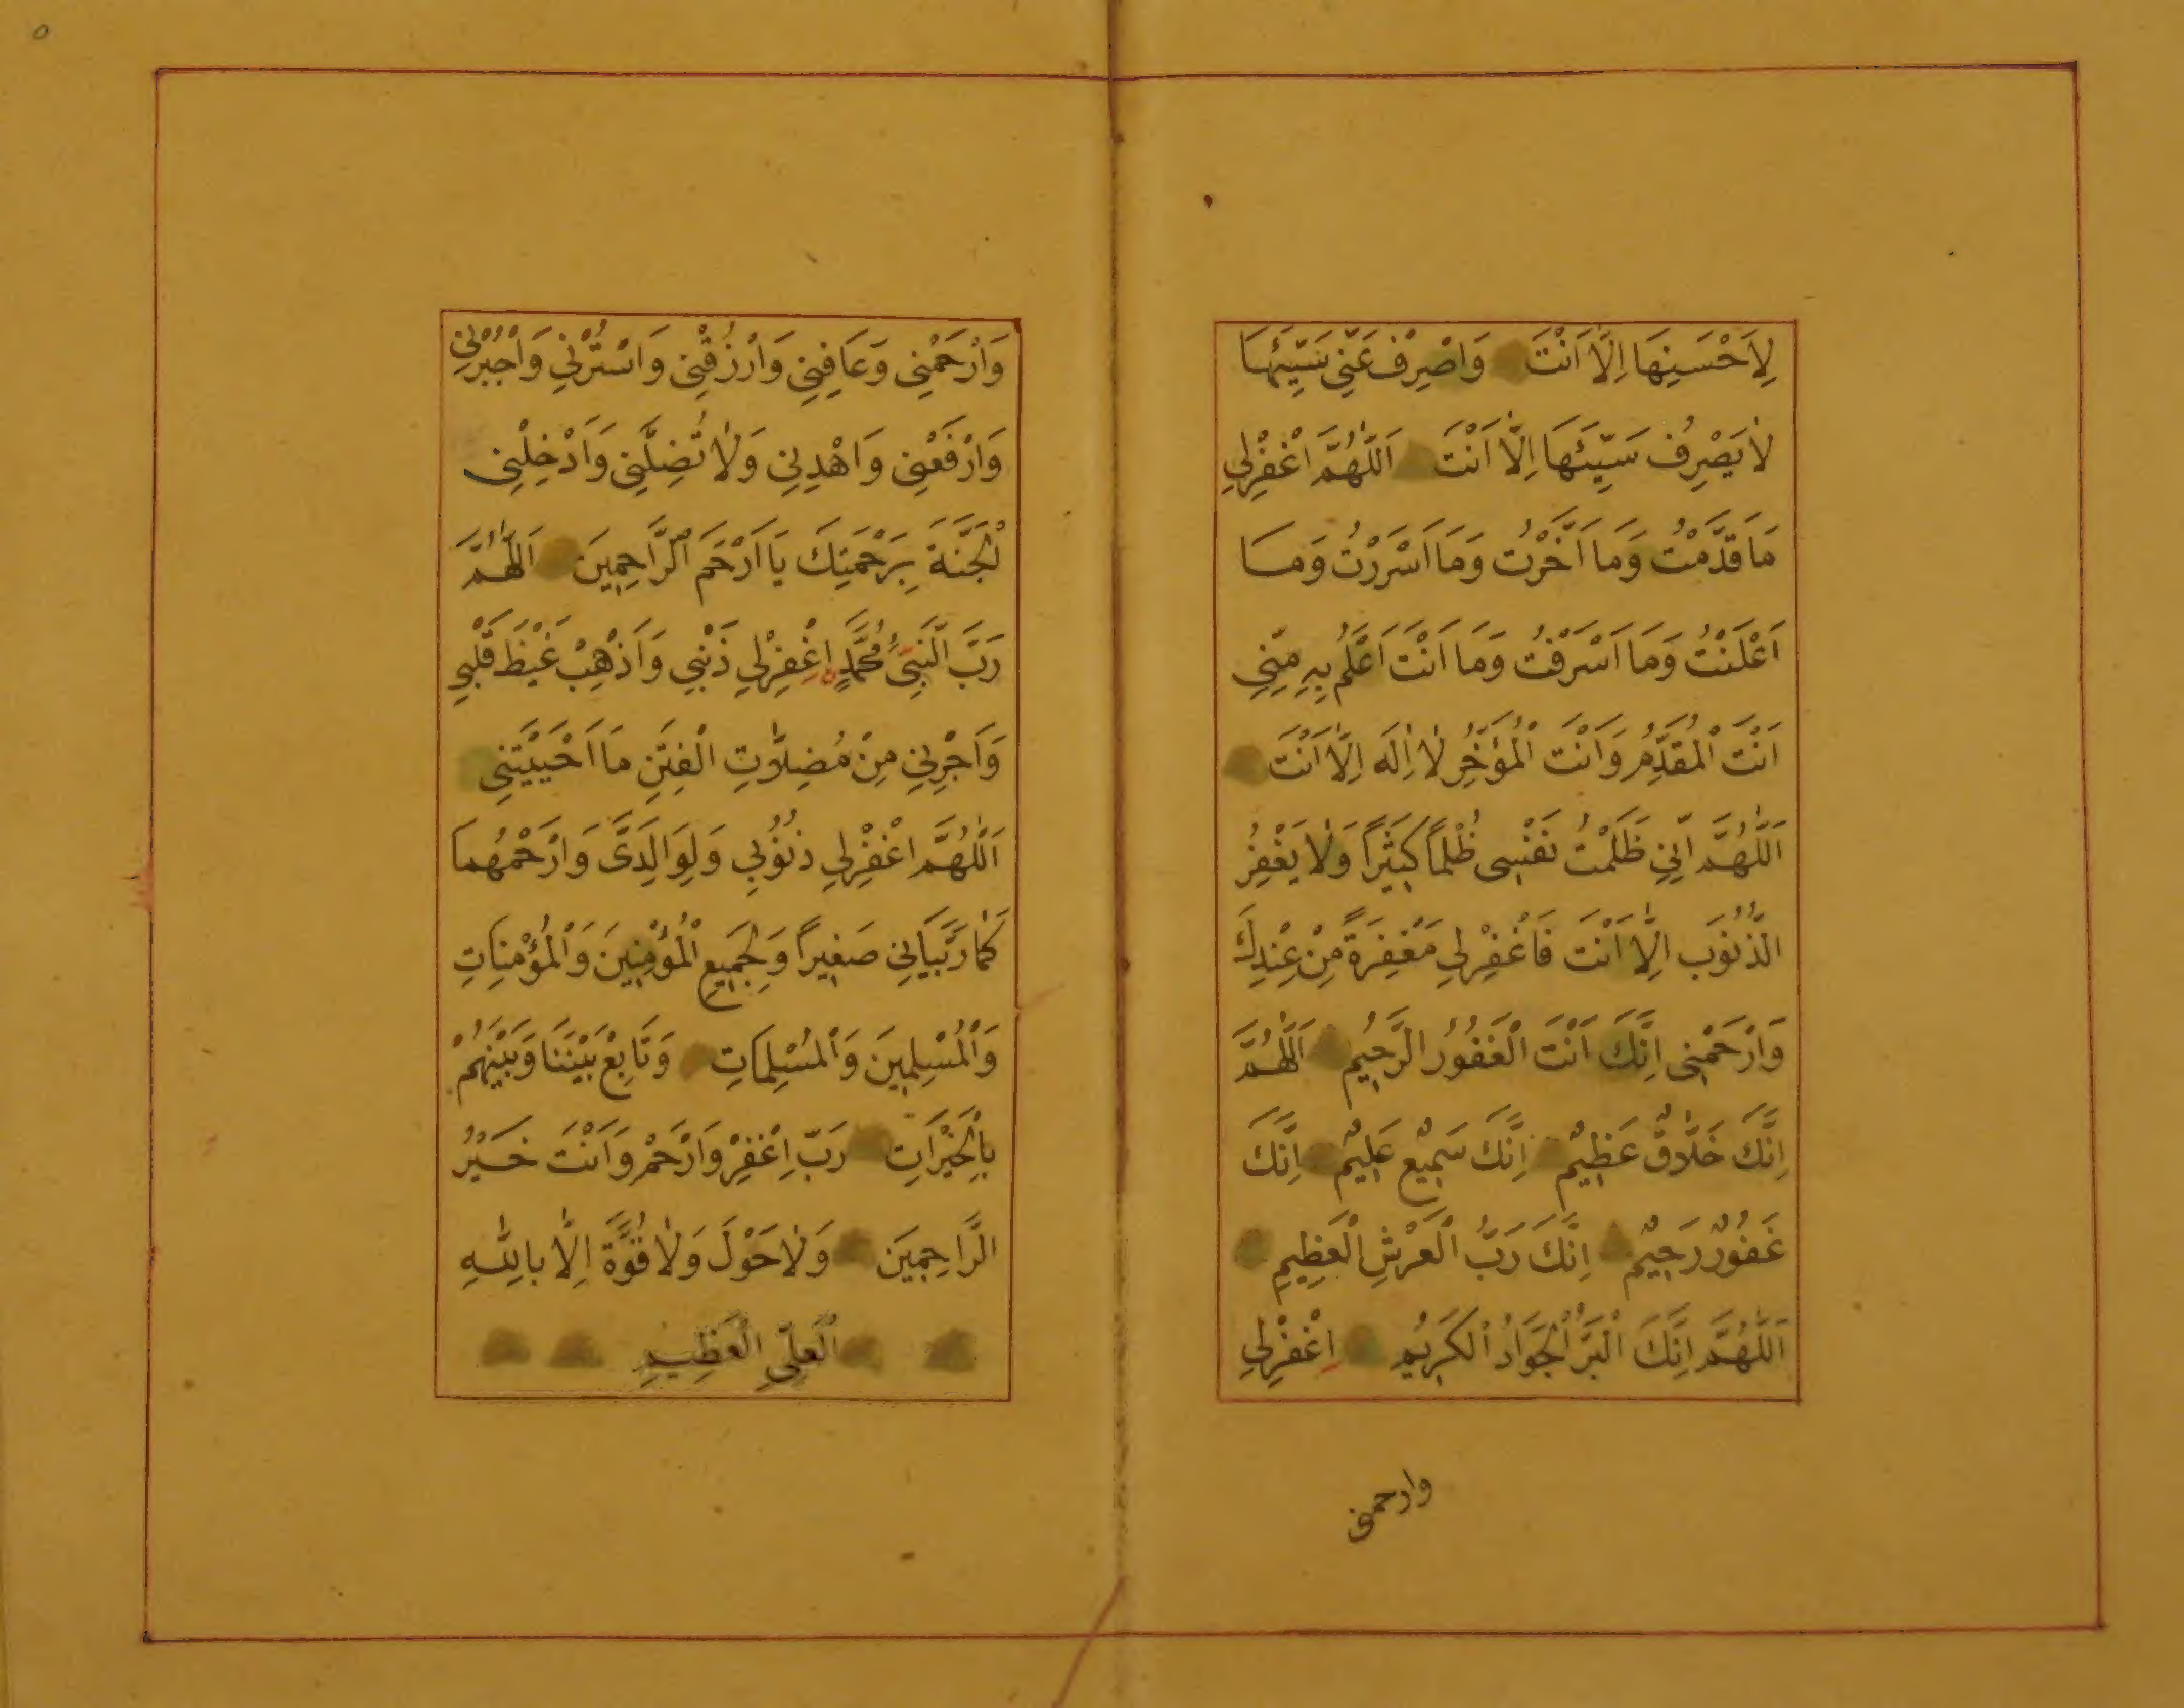 لِاَحْسَنِهَا اِلَّا اَنْتَ وَاصْرِفْ عَنِّي سَيِّئَهَا
لَا يَصْرِفُ سَيِّئَهَا اِلَّا اَنْتَ اَللّٰهُمَّ اغْفِرْلِي
مَا قَدَّمْتُ وَمَا اَخَّرْتُ وَمَا اَسْرَرْتُ وَمَا
اَعْلَنْتُ وَمَا اَسْرَفْتُ وَمَا اَنْتَ اَعْلَمُ بِهِ مِنِّي
اَنْتَ الْمُقَدِّمُ وَاَنْتَ الْمُؤَخِّرُ لَا اِلٰهَ اِلَّا اَنْتَ
اَللّٰهُمَّ اِنِّي ظَلَمْتُ نَفْسِى ظُلْمًا كَثِيْرًا وَلَا يَغْفِرُ
الذُّنُوْبَ اِلَّا اَنْتَ فَاغْفِرْلِي مَغْفِرَةً مِنْ عِنْدِكَ
وَارْحَمْنِى اِنَّكَ اَنْتَ الْغَفُوْرُ الرَّحِيْمُ اَللّٰهُمَّ
اِنَّكَ خَلَّاقٌ عَظِيْمٌ اِنَّكَ سَمِيْعٌ عَلِيْمٌ اِنَّكَ
غَفُوْرٌ رَحِيْمٌ اِنَّكَ رَبُّ الْعَرْشِ الْعَظِيْمِ
اَللّٰهُمَّ اِنَّكَ الْبَرُّ الْجَوَادُ الْكَرِيْمُ اِغْفِرْلِي
وارحمنى
وَارْحَمْنِى وَعَافِنِى وَارْزُقْنِى وَاسْتُرْنِي وَاجْبُرْنِي
وَارْفَعْنِى وَاهْدِنِي وَلَا تُضِلَّنِى وَاَدْخِلْنِى
الْجَنَّةَ بِرَحْمَتِكَ يَا اَرْحَمَ الرَّاحِمِيْنَ اَللّٰهُمَّ
رَبَّ النَّبِيِّ مُحَمَّدٍ اِغْفِرْلِي ذَنْبِي وَاَذْهِبْ غَيْظَ قَلْبِي
وَاَجِرْنِي مِنْ مُضِلَّاتِ الْفِتَنِ مَا اَحْيَيْتَنِى
اَللّٰهُمَّ اغْفِرْلِي ذُنُوْبِي وَلِوَالِدَىَّ وَارْحَمْهُمَا
كَمَا رَبَّيَانِي صَغِيْرًا وَلِجَمِيْعِ الْمُؤْمِنِيْنَ وَالْمُؤْمِنَاتِ
وَالْمُسْلِمِيْنَ وَالْمُسْلِمَاتِ وَتَابِعْ بَيْنَنَا وَبَيْنَهُمْ
بِالْخَيْرَاتِ رَبِّ اِغْفِرْ وَارْحَمْ وَاَنْتَ خَيْرُ
الرَّاحِمِيْنَ وَلَا حَوْلَ وَلَا قُوَّةَ اِلَّا بِاللّٰهِ
الْعَلِيِّ الْعَظِيْمِ